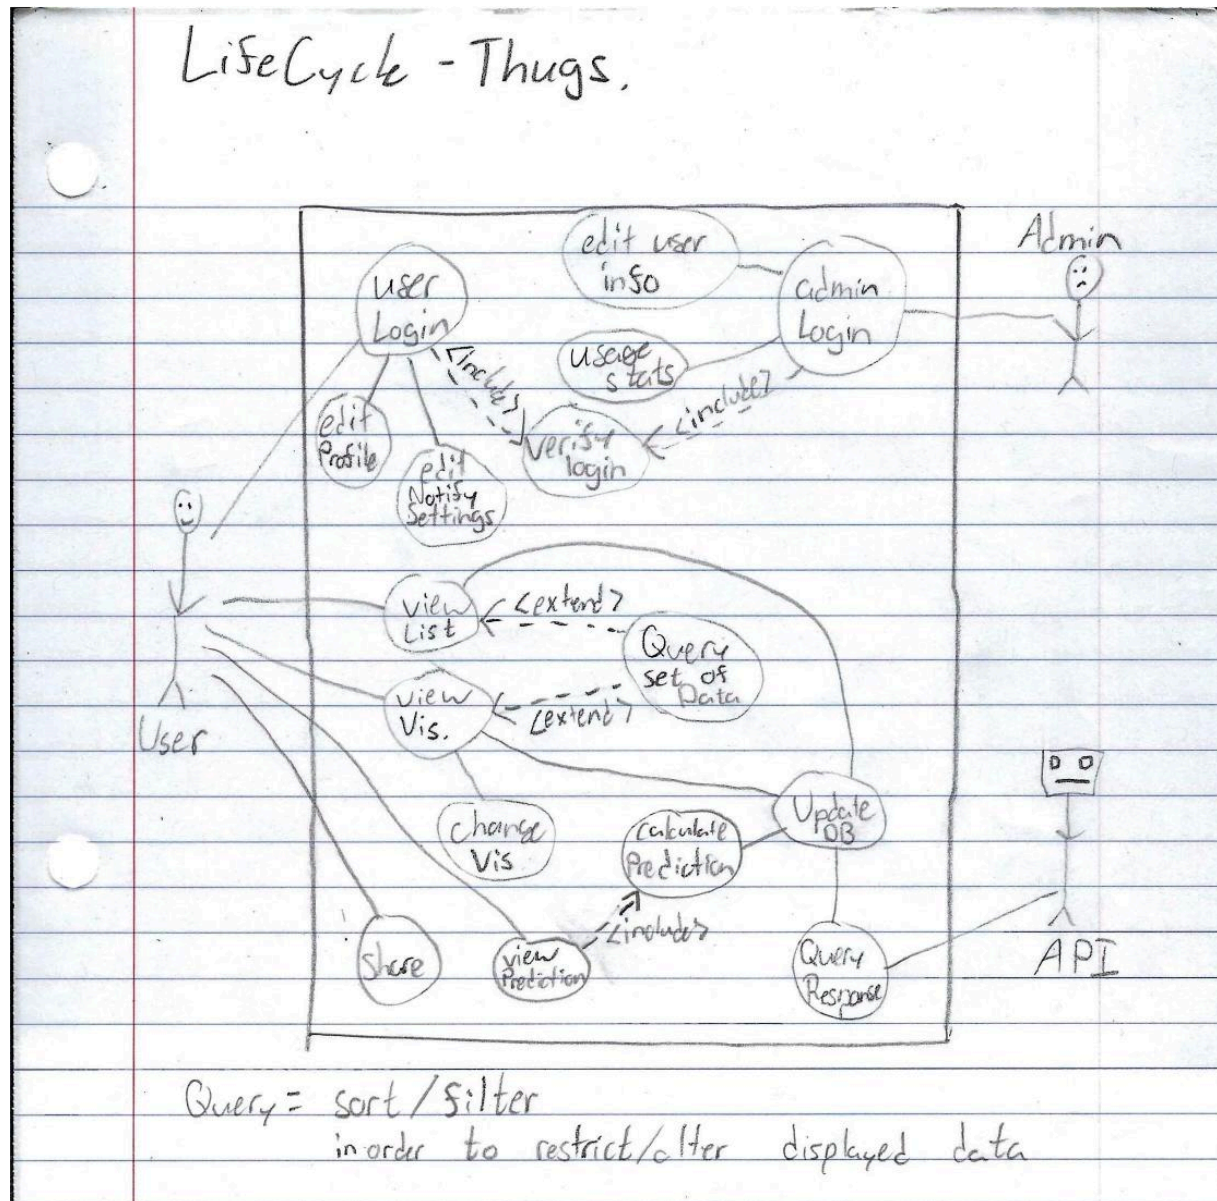 LifeCycle - Thugs.
Admin
edit user
info
user
Login
admin
Login
usage
stats
<include>
<include>
edit
Profile
verify
login
edit
Notify
Settings
view
List
<extend>
Query
set of
Data
view
Vis.
<extend>
User
change
Vis
calculate
Prediction
Update
DB
share
view
Prediction
<include>
Query
Response
API
Query = sort/filter
in order to restrict/alter displayed data